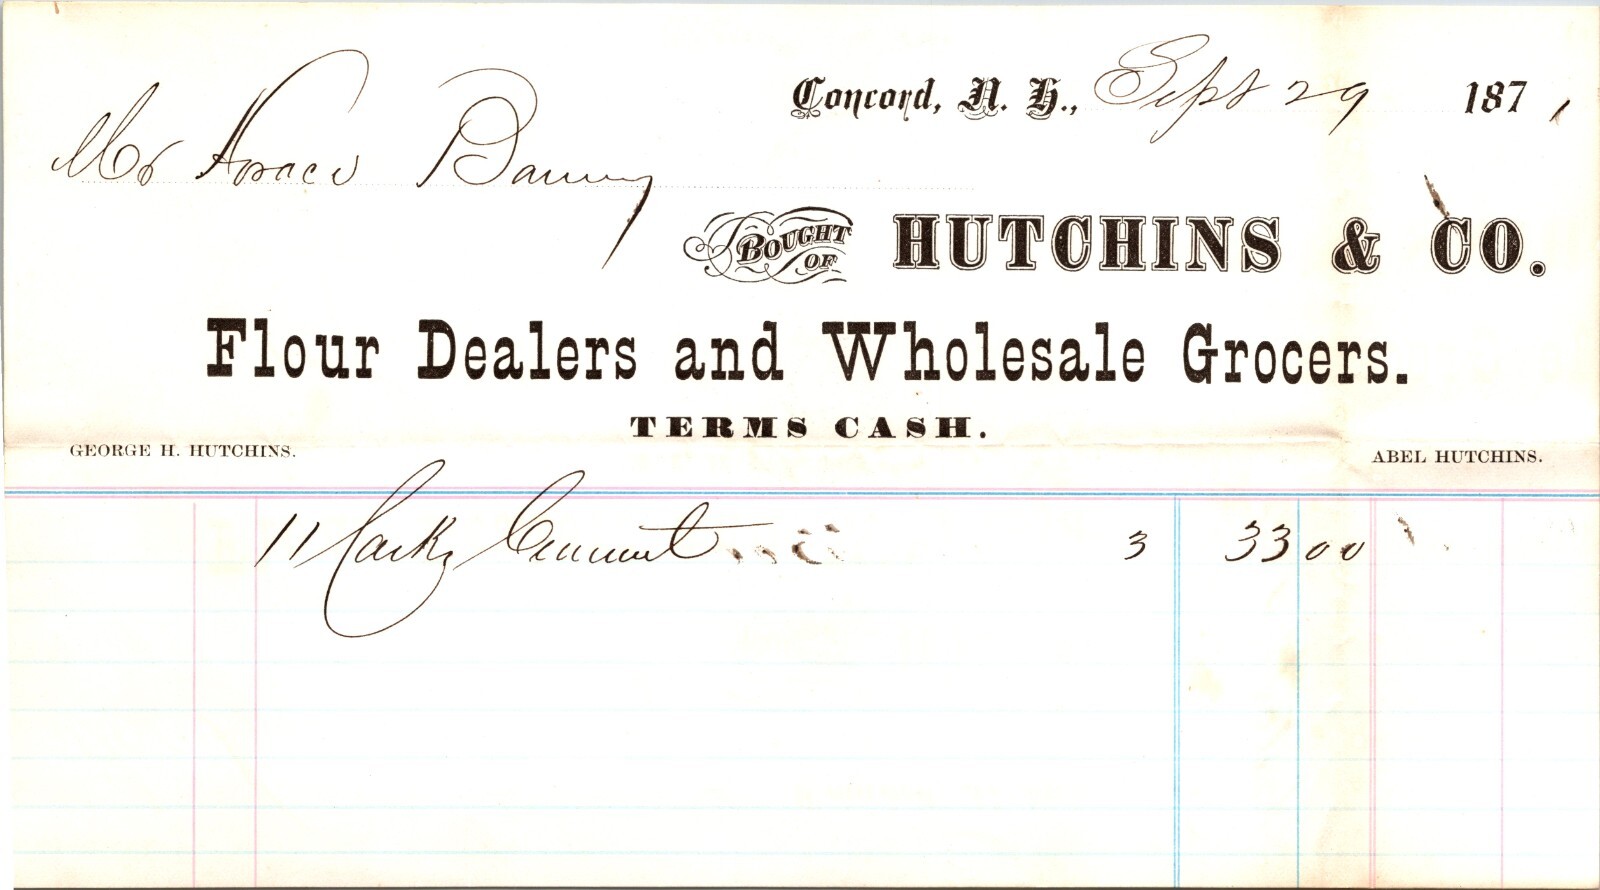 Concord, N. H., Sept 29 1871,
Mr Horace
BOUGHT OF HUTCHINS & CO.
Flour Dealers and Wholesale Grocers.
TERMS CASH.
GEORGE H. HUTCHINS. ABEL HUTCHINS.
11 Casks Cement 3 33 00